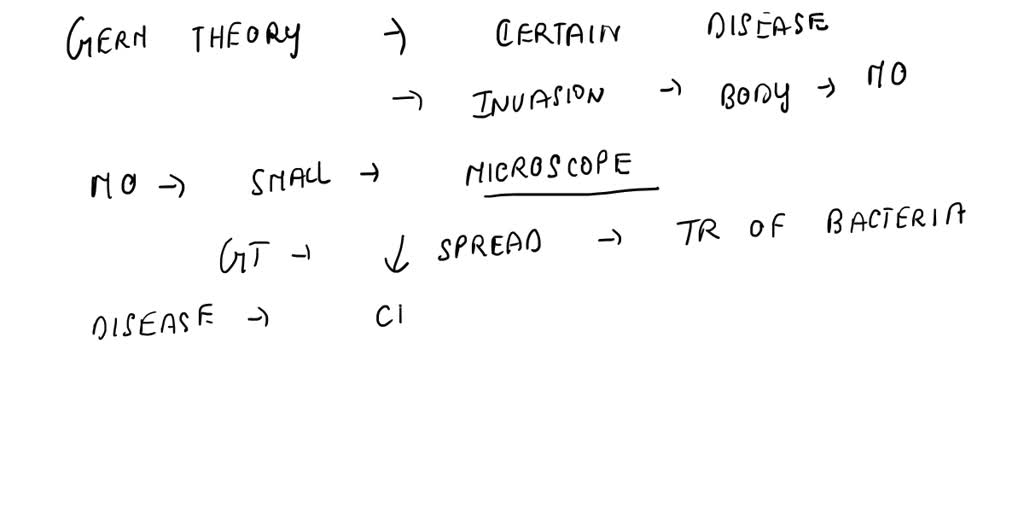 GERM THEORY → CERTAIN DISEASE
→ INVASION → BODY → MO
MO → SMALL → MICROSCOPE
GT → ↓ SPREAD → TR OF BACTERIA
DISEASE → CI